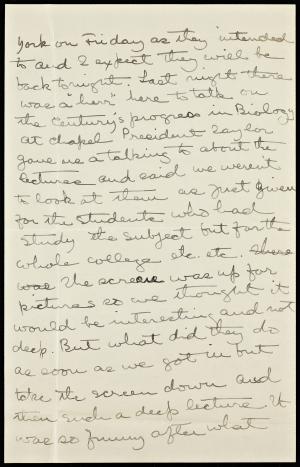 York on Friday as they intended
to and I expect they will be
back tonight. Last night "there
was a herr" here to talk on
the Century's progress in Biology
at chapel President Taylor
gave us a talking to about the
lectures and said we weren't
to look at them as just given
for the students who had
study the subject but for the
whole college etc. etc. There
was The screen was up for
pictures so we thought it
would be interesting and not
deep. But what did they do
as soon as we got in but
take the screen down and
then such a deep lecture. It
was so funny after what